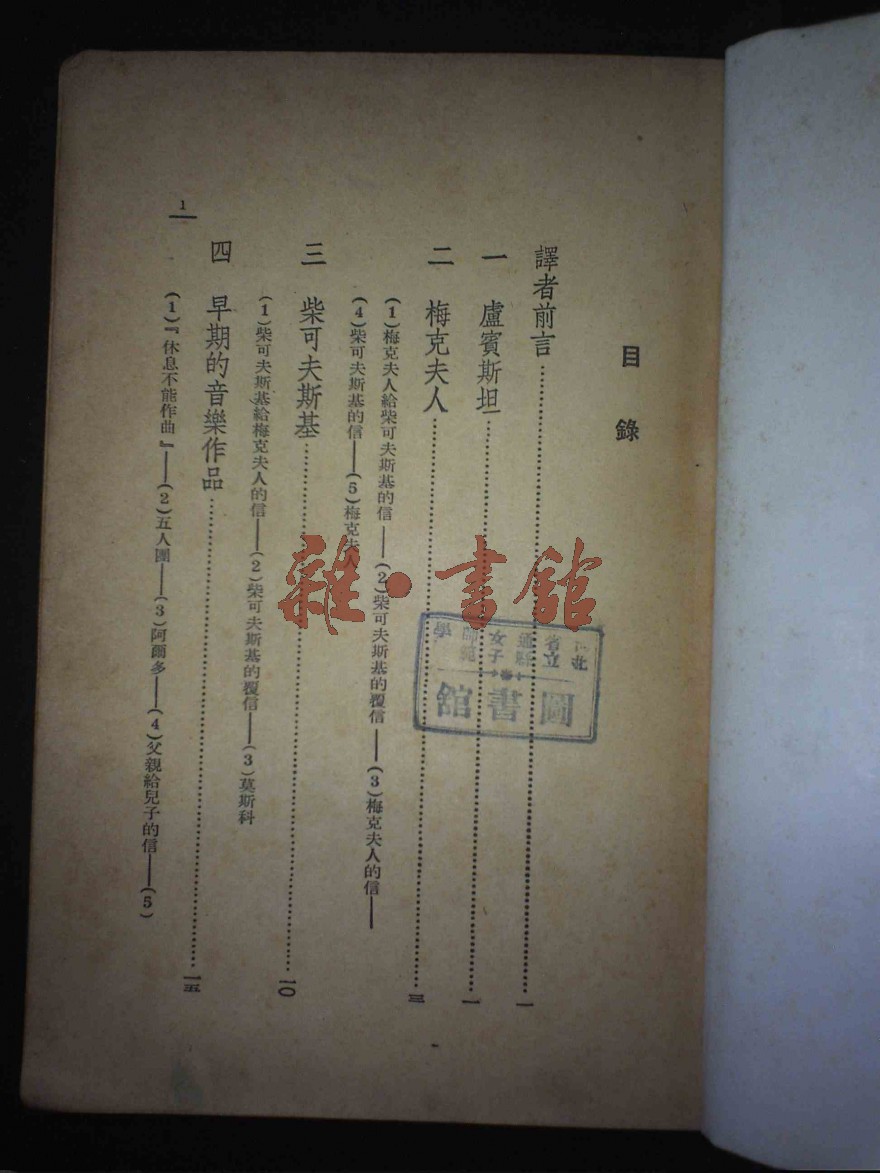 目錄
譯者前言……一
一 盧賓斯坦……一
二 梅克夫人……三
(1)梅克夫人給柴可夫斯基的信——(2)柴可夫斯基的覆信——(3)梅克夫人的信——
(4)柴可夫斯基的信——(5)梅克夫人
三 柴可夫斯基……一〇
(1)柴可夫斯基給梅克夫人的信——(2)柴可夫斯基的覆信——(3)莫斯科
四 早期的音樂作品……一五
(1)『休息不能作曲』——(2)五人團——(3)阿爾多——(4)父親給兒子的信——(5)
1
雜·書館
河北
省立
通縣
女子
師範
學
圖書館